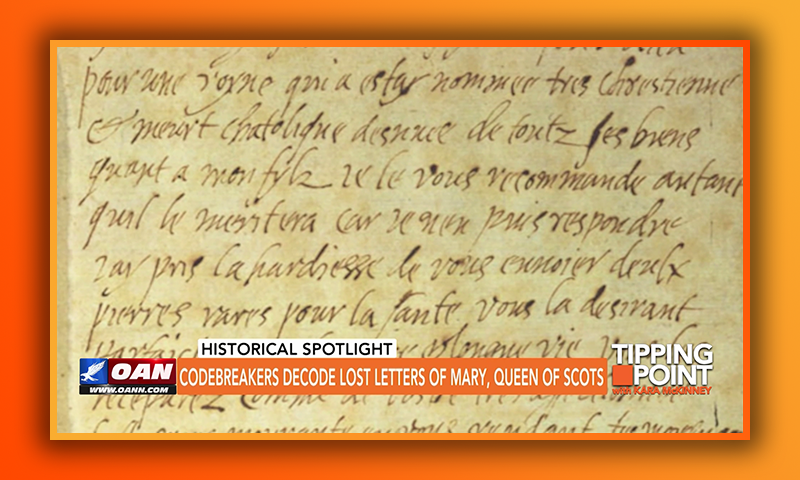 pour une royne qui a estay nommee tres chrestienne
& meurt chatolique desnuee de toutz ses biens
quant a mon fylz ie le vous recommande autant
quil le meritera car ie nen puis respondre
iay pris la hardiesse de vous ennoier deulx
pierres rares pour la sante vous la desirant
longue vie
HISTORICAL SPOTLIGHT
OAN
WWW.OANN.COM
CODEBREAKERS DECODE LOST LETTERS OF MARY, QUEEN OF SCOTS
TIPPING
POINT
WITH KARA MCKINNEY